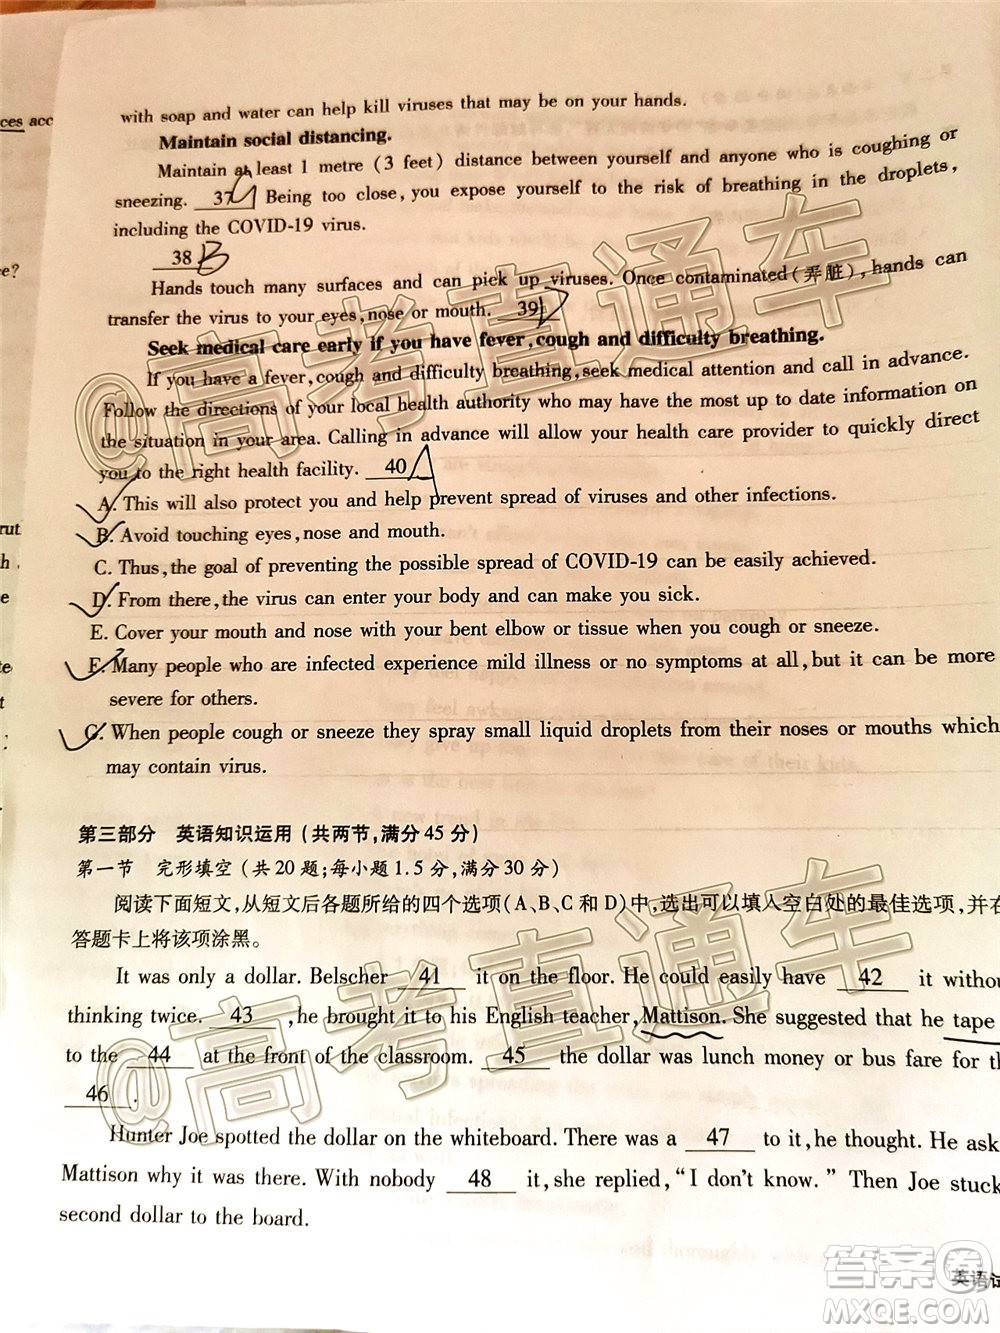 ces acc
with soap and water can help kill viruses that may be on your hands.
Maintain social distancing.
Maintain at least 1 metre (3 feet) distance between yourself and anyone who is coughing or
sneezing. 37 Being too close, you expose yourself to the risk of breathing in the droplets,
including the COVID-19 virus.
38 B
e?
Hands touch many surfaces and can pick up viruses. Once contaminated (弄脏), hands can
transfer the virus to your eyes, nose or mouth. 39 D
Seek medical care early if you have fever, cough and difficulty breathing.
If you have a fever, cough and difficulty breathing, seek medical attention and call in advance.
Follow the directions of your local health authority who may have the most up to date information on
the situation in your area. Calling in advance will allow your health care provider to quickly direct
you to the right health facility. 40 A
A. This will also protect you and help prevent spread of viruses and other infections.
rut
B. Avoid touching eyes, nose and mouth.
h
C. Thus, the goal of preventing the possible spread of COVID-19 can be easily achieved.
e
D. From there, the virus can enter your body and can make you sick.
E. Cover your mouth and nose with your bent elbow or tissue when you cough or sneeze.
te
F. Many people who are infected experience mild illness or no symptoms at all, but it can be more
t
severe for others.
G. When people cough or sneeze they spray small liquid droplets from their noses or mouths which
may contain virus.
第三部分 英语知识运用 (共两节,满分 45 分)
第一节 完形填空 (共 20 题;每小题 1.5 分,满分 30 分)
阅读下面短文,从短文后各题所给的四个选项(A、B、C 和 D)中,选出可以填入空白处的最佳选项,并在
答题卡上将该项涂黑。
It was only a dollar. Belscher 41 it on the floor. He could easily have 42 it withou
thinking twice. 43 , he brought it to his English teacher, Mattison. She suggested that he tape
to the 44 at the front of the classroom. 45 the dollar was lunch money or bus fare for th
46 .
Hunter Joe spotted the dollar on the whiteboard. There was a 47 to it, he thought. He ask
Mattison why it was there. With nobody 48 it, she replied, "I don't know." Then Joe stuck
second dollar to the board.
英语试
@高考直通车
@高考直通车
答案圈
MXQE.COM